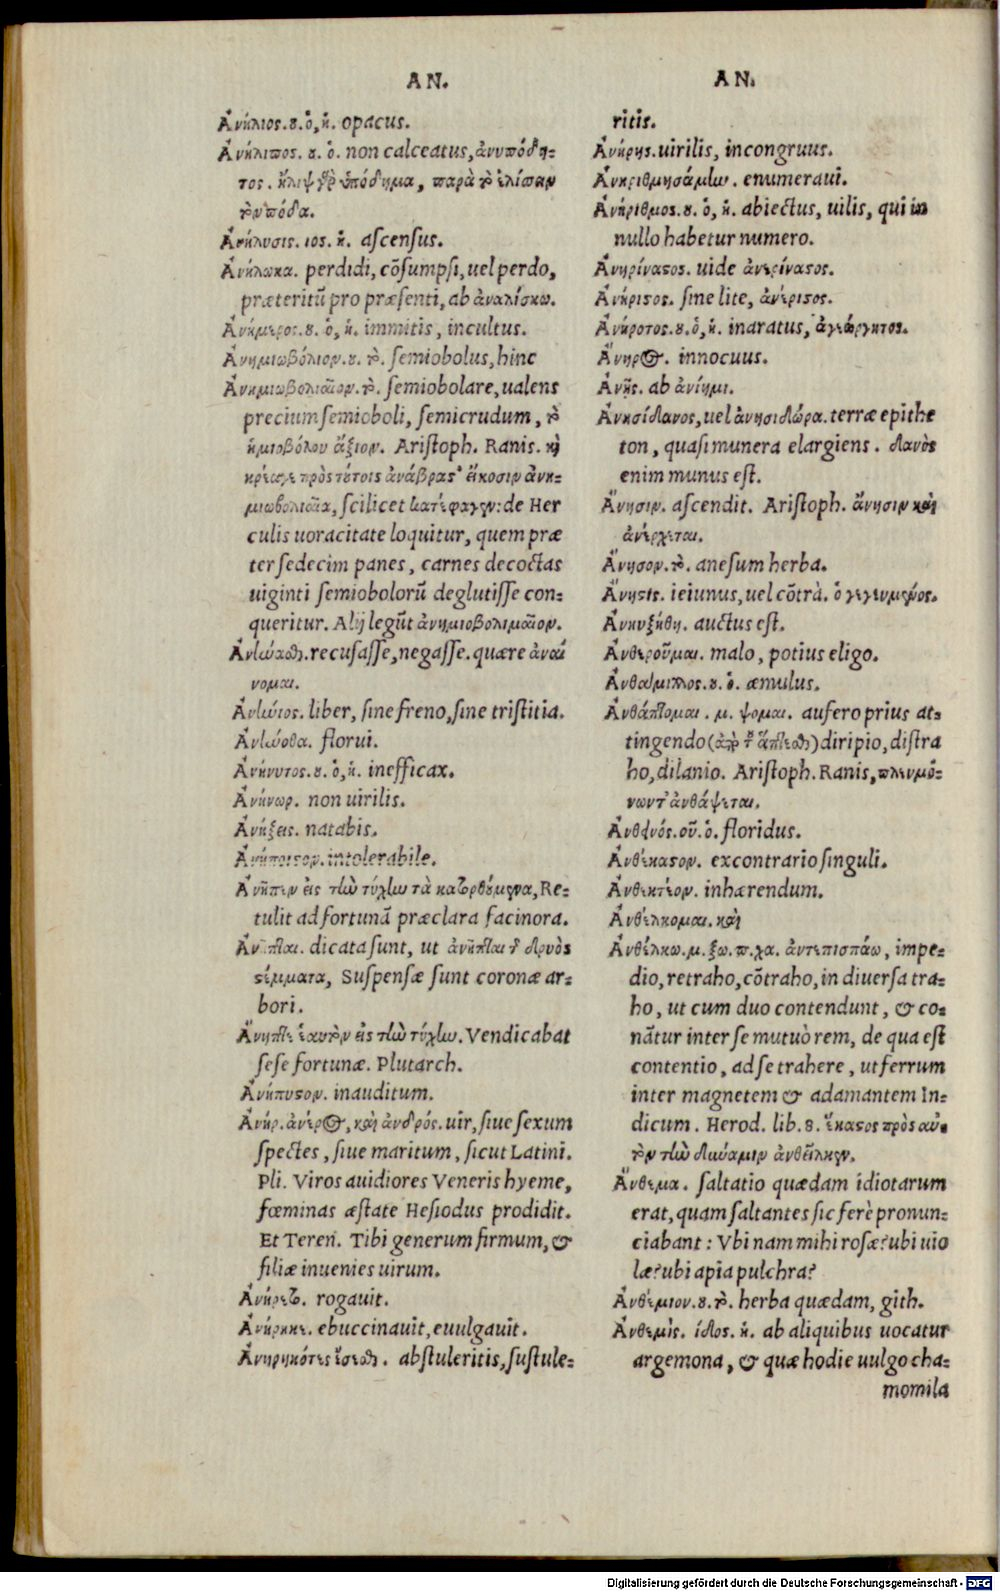 AN.
Ἀνήλιος.ȣ.ὁ,ἡ. opacus.
Ἀνήλιπος. ȣ. ὁ. non calceatus, ἀνυπόδη=
τος. ἤλιψ γὰρ ὑπόδημα, παρὰ τὸ ἑλίπειν
τὸν πόδα.
Ἀνήλυσις. ιος. ἡ. aſcenſus.
Ἀνήλωκα. perdidi, cõſumpſi, uel perdo,
præteritũ pro præſenti, ab ἀναλίσκω.
Ἀνήμερος.ȣ. ὁ, ἡ. immitis, incultus.
Ἀνημιωβόλιον.ȣ. τὸ. ſemiobolus, hinc
Ἀνημιωβολιαῖον. τὸ. ſemiobolare, ualens
precium ſemioboli, ſemicrudum, τὸ
ἡμιοβόλου ἄξιον. Ariſtoph. Ranis. καὶ
κρέα γε πρὸς τȣ́τοις ἀνάβραστ' εἴκοσιν ἀνη=
μιωβολιαῖα, ſcilicet κατέφαγεν: de Her
culis uoracitate loquitur, quem præ
ter ſedecim panes, carnes decoctas
uiginti ſemiobolorũ deglutiſſe con=
queritur. Alij legũt ἀνημιοβολιμαῖον.
Ἀνήναϲθαι. recuſaſſe, negaſſe. quære ἀναί
νομαι.
Ἀνήνιος. liber, ſine freno, ſine triſtitia.
Ἀνήνοθα. florui.
Ἀνήνυτος.ȣ. ὁ, ἡ. inefficax.
Ἀνήνωρ. non uirilis.
Ἀνήξεις. natabis.
Ἀνήποιστον. intolerabile.
Ἀνῆπεν εἰς τὴν τύχην τὰ κατορθούμενα, Re=
tulit ad fortunã præclara facinora.
Ἀνῆπται. dicata ſunt, ut ἀνῆπται τ δρυὸς
στέμματα, Suſpenſæ ſunt coronæ ar=
bori.
Ἄνηπτε ἑαυτὸν εἰς τὴν τύχην. Vendicabat
ſeſe fortunæ. Plutarch.
Ἀνήπυστον. inauditum.
Ἀνήρ. ἀνέρος, καὶ ἀνδρός. uir, ſiue ſexum
ſpectes, ſiue maritum, ſicut Latini.
Pli. Viros auidiores Veneris hyeme,
fœminas æſtate Heſiodus prodidit.
Et Teren. Tibi generum firmum, &
filiæ inuenies uirum.
Ἀνήρετο. rogauit.
Ἀνήρηκε. ebuccinauit, euulgauit.
Ἀνῃρηκότες ἔσεσθε. abſtuleritis, ſuſtule=
AN.
ritis.
Ἀνήρης. uirilis, incongruus.
Ἀνηριθμησάμην. enumeraui.
Ἀνήριθμος.ȣ. ὁ, ἡ. abiectus, uilis, qui in
nullo habetur numero.
Ἀνηρίναστος. uide ἀνερίναστος.
Ἀνήριστος. ſine lite, ἀνέριστος.
Ἀνήροτος.ȣ.ὁ, ἡ. inaratus, ἀγεώργητος.
Ἄνηρος. innocuus.
Ἀνῇς. ab ἀνίημι.
Ἀνησίδανος, uel ἀνησιδώρα. terræ epithe
ton, quaſi munera elargiens. δανὸς
enim munus eſt.
Ἄνησιν. aſcendit. Ariſtoph. ἄνησιν καὶ
ἀνέρχεται.
Ἄνησον. τὸ. aneſum herba.
Ἄνηστις. ieiunus, uel cõtrà. ὁ γεγευμένος.
Ἀνηυξήθη. auctus eſt.
Ἀνθεροῦμαι. malo, potius eligo.
Ἀνθάμιλλος.ȣ. ὁ. æmulus.
Ἀνθάπτομαι. μ. ψομαι. aufero prius at=
tingendo (ἀπὸ τ ἅπτεσθαι) diripio, diſtra
ho, dilanio. Ariſtoph. Ranis, πλευμό=
νων τ' ἀνθάψεται.
Ἀνθεινός. οῦ. ὁ. floridus.
Ἀνθέκαστον. ex contrario ſinguli.
Ἀνθεκτέον. inhærendum.
Ἀνθέλκομαι. καὶ
Ἀνθέλκω. μ. ξω. π. χα. ἀντεπισπάω, impe=
dio, retraho, cõtraho, in diuerſa tra=
ho, ut cum duo contendunt, & co=
nãtur inter ſe mutuò rem, de qua eſt
contentio, ad ſe trahere, ut ferrum
inter magnetem & adamantem In=
dicum. Herod. lib. 8. ἕκαστος πρὸς αὑ=
τὸν τὴν δύναμιν ἀνθεῖλκεν.
Ἄνθεμα. ſaltatio quædam idiotarum
erat, quam ſaltantes ſic ferè pronun=
ciabant: Vbi nam mihi roſæ? ubi uio
læ? ubi apia pulchra?
Ἀνθέμιον.ȣ. τὸ. herba quædam, gith.
Ἀνθεμὶς. ίδος. ἡ. ab aliquibus uocatur
argemona, & quæ hodie uulgo cha=
momila
Digitalisierung gefördert durch die Deutsche Forschungsgemeinschaft - DFG